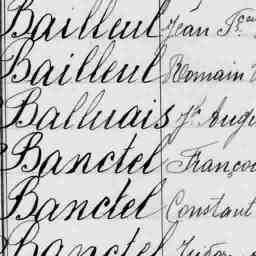 Bailleul Jean Fs
Bailleul Romain
Balluais Jh Augu
Banctel Françoi
Banctel Constant
Banctel